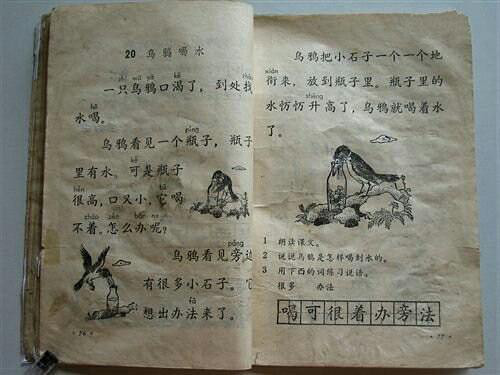 20 乌鸦喝水
zhī wū yā kě
一只乌鸦口渴了，到处找
hē
水喝。
píng
乌鸦看见一个瓶子，瓶子
kě
里有水。可是瓶子
hěn
很高，口又小，它喝
zháo zěn bàn ne
不着，怎么办呢？
páng
乌鸦看见旁边
有很多小石子。它
fǎ
想出办法来了。
· 76 ·
乌鸦把小石子一个一个地
xián
衔来，放到瓶子里。瓶子里的
shēng
水升高了，乌鸦就喝着水
了。
1 朗读课文。
2 说说乌鸦是怎样喝到水的。
3 用下面的词练习说话。
很多 办法
喝可很着办旁法
· 77 ·